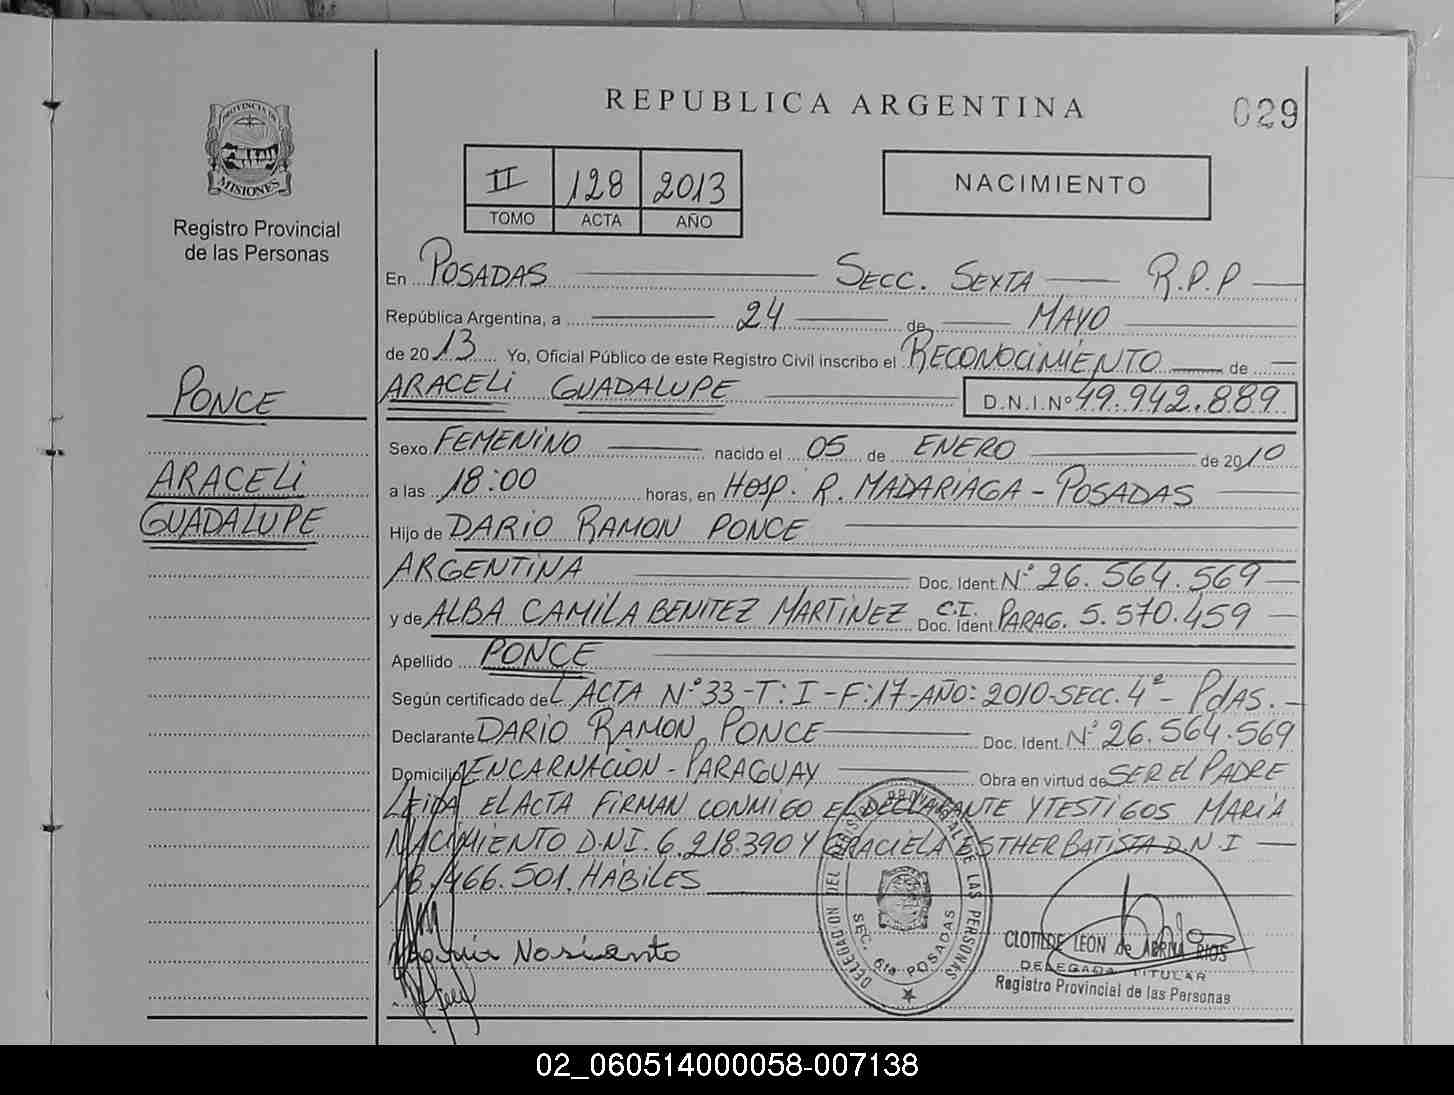 REPUBLICA ARGENTINA
029
PROVINCIA DE
MISIONES
Registro Provincial
de las Personas
II 128 2013
TOMO ACTA AÑO
NACIMIENTO
En POSADAS SECC. SEXTA R.P.P
República Argentina, a 24 de MAYO
de 2013 Yo, Oficial Público de este Registro Civil inscribo el RECONOCIMIENTO de
ARACELI GUADALUPE D.N.I.Nº 49.942.889
PONCE
ARACELI
GUADALUPE
Sexo FEMENINO nacido el 05 de ENERO de 2010
a las 18:00 horas, en HOSP. R. MADARIAGA - POSADAS
Hijo de DARIO RAMON PONCE
ARGENTINA Doc. Ident. Nº 26.564.569
y de ALBA CAMILA BENITEZ MARTINEZ C.I. Doc. Ident. PARAG. 5.570.459
Apellido PONCE
Según certificado de L ACTA Nº 33-T: I-F:17-AÑO: 2010-SECC. 4ª - PdAS.-
Declarante DARIO RAMON PONCE Doc. Ident. Nº 26.564.569
Domicilio ENCARNACION - PARAGUAY Obra en virtud de SER EL PADRE
LEIDA EL ACTA FIRMAN CONMIGO EL DECLARANTE Y TESTIGOS MARIA
NACIMIENTO D.N.I. 6.218.390 Y GRACIELA ESTHER BATISTA D.N.I
18.466.501. HABILES
Maria Nasimento
DELEGAD NO DEL REGISTRO PROVINCIAL DE LAS PERSONAS
SEC. 6ta POSADAS
CLOTILDE LEON de ABRINA RIOS
DELEGADA TITULAR
Registro Provincial de las Personas
02_060514000058-007138